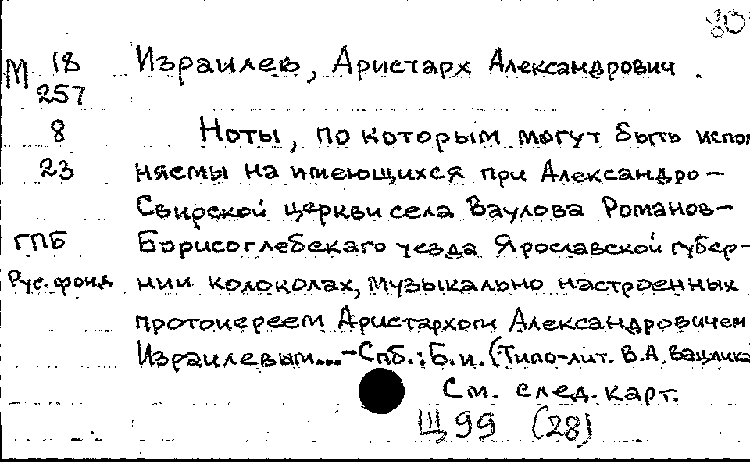 80
М 18 Израилев, Аристарх Александрович.
257
8 Ноты, по которым могут быть испол
23 няемы на имеющихся при Александро-
Свирской церкви села Ваулова Романов-
ГПБ Борисоглебскаго уезда Ярославской губер-
Рус. фонд нии колоколах, музыкально настроенных
протоиереем Аристархом Александровичем
Израилевым...-Спб.: Б.и. (Типо-лит. В.А. Вацлика
См. след. карт.
Щ 99 (28)